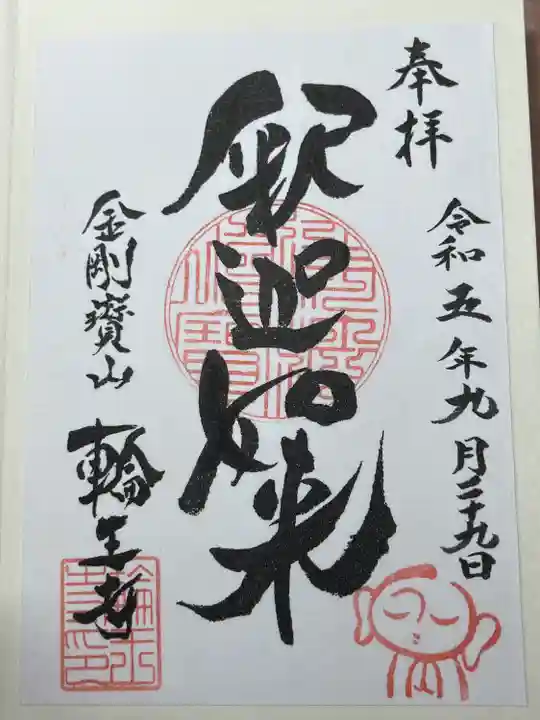 奉拝
令和五年九月二十九日
釈迦如来
金剛寶山
輪王寺
輪王寺印